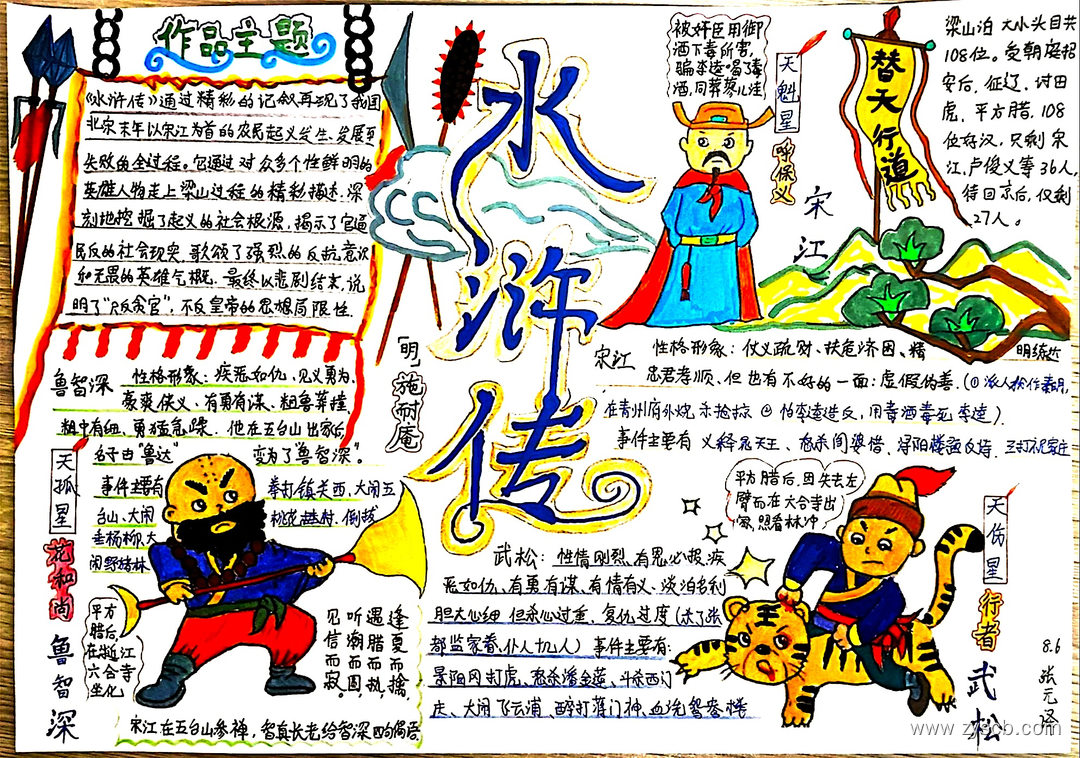 作品主题
《水浒传》通过精彩的记叙再现了我国
北宋末年以宋江为首的农民起义发生、发展至
失败的全过程。它通过对众多个性鲜明的
英雄人物走上梁山过程的精彩描述,深
刻地挖掘了起义的社会根源,揭示了官逼
民反的社会现实,歌颂了强烈的反抗意识
和无畏的英雄气概。最终以悲剧结束,说
明了"只反贪官",不反皇帝的思想局限性.
水浒传
「明」施耐庵
被奸臣用御
酒下毒所害,
骗李逵喝了毒
酒,同葬蓼儿洼
天魁星
呼保义
宋江
替天行道
梁山泊 大小头目共
108位。受朝廷招
安后,征辽、讨田
虎,平方腊,108
位好汉,只剩宋
江,卢俊义等36人,
待回京后,仅剩
27人。
宋江 性格形象:仗义疏财、扶危济困、精
明练达
忠君孝顺,但也有不好的一面:虚假伪善,
在青州府外烧杀抢掠 ② 怕李逵造反,用毒酒毒死李逵)
事件主要有 义释晁天王、怒杀阎婆惜、浔阳楼题反诗、三打祝家庄
鲁智深 性格形象:疾恶如仇,见义勇为,
豪爽侠义、有勇有谋、粗鲁莽撞,
粗中有细、勇猛急躁. 他在五台山出家后,
名字由"鲁达" 变为了"鲁智深"。
事件主要有 拳打镇关西,大闹五
台山、大闹 桃花村,倒拔
垂杨柳、大
闹野猪林
天孤星
花和尚
鲁智深
平方
腊后,
在浙江
六合寺
坐化
逢夏而擒,
遇腊而执,
听潮而圆,
见信而寂。
宋江在五台山参禅,智真长老给智深四句偈语
武松:性情刚烈、有恩必报、疾
恶如仇、有勇有谋、有情有义、淡泊名利
胆大心细 但杀心过重,复仇过度(杀了张
都监家眷、仆人十九人) 事件主要有:
景阳冈打虎、怒杀潘金莲、斗杀西门
庆、大闹飞云浦、醉打蒋门神、血洗鸳鸯楼
平方腊后,因失去左
臂而在六合寺出
家,照看林冲
王
天伤星
行者
武松
8.6
张元译
www.zyscb.com